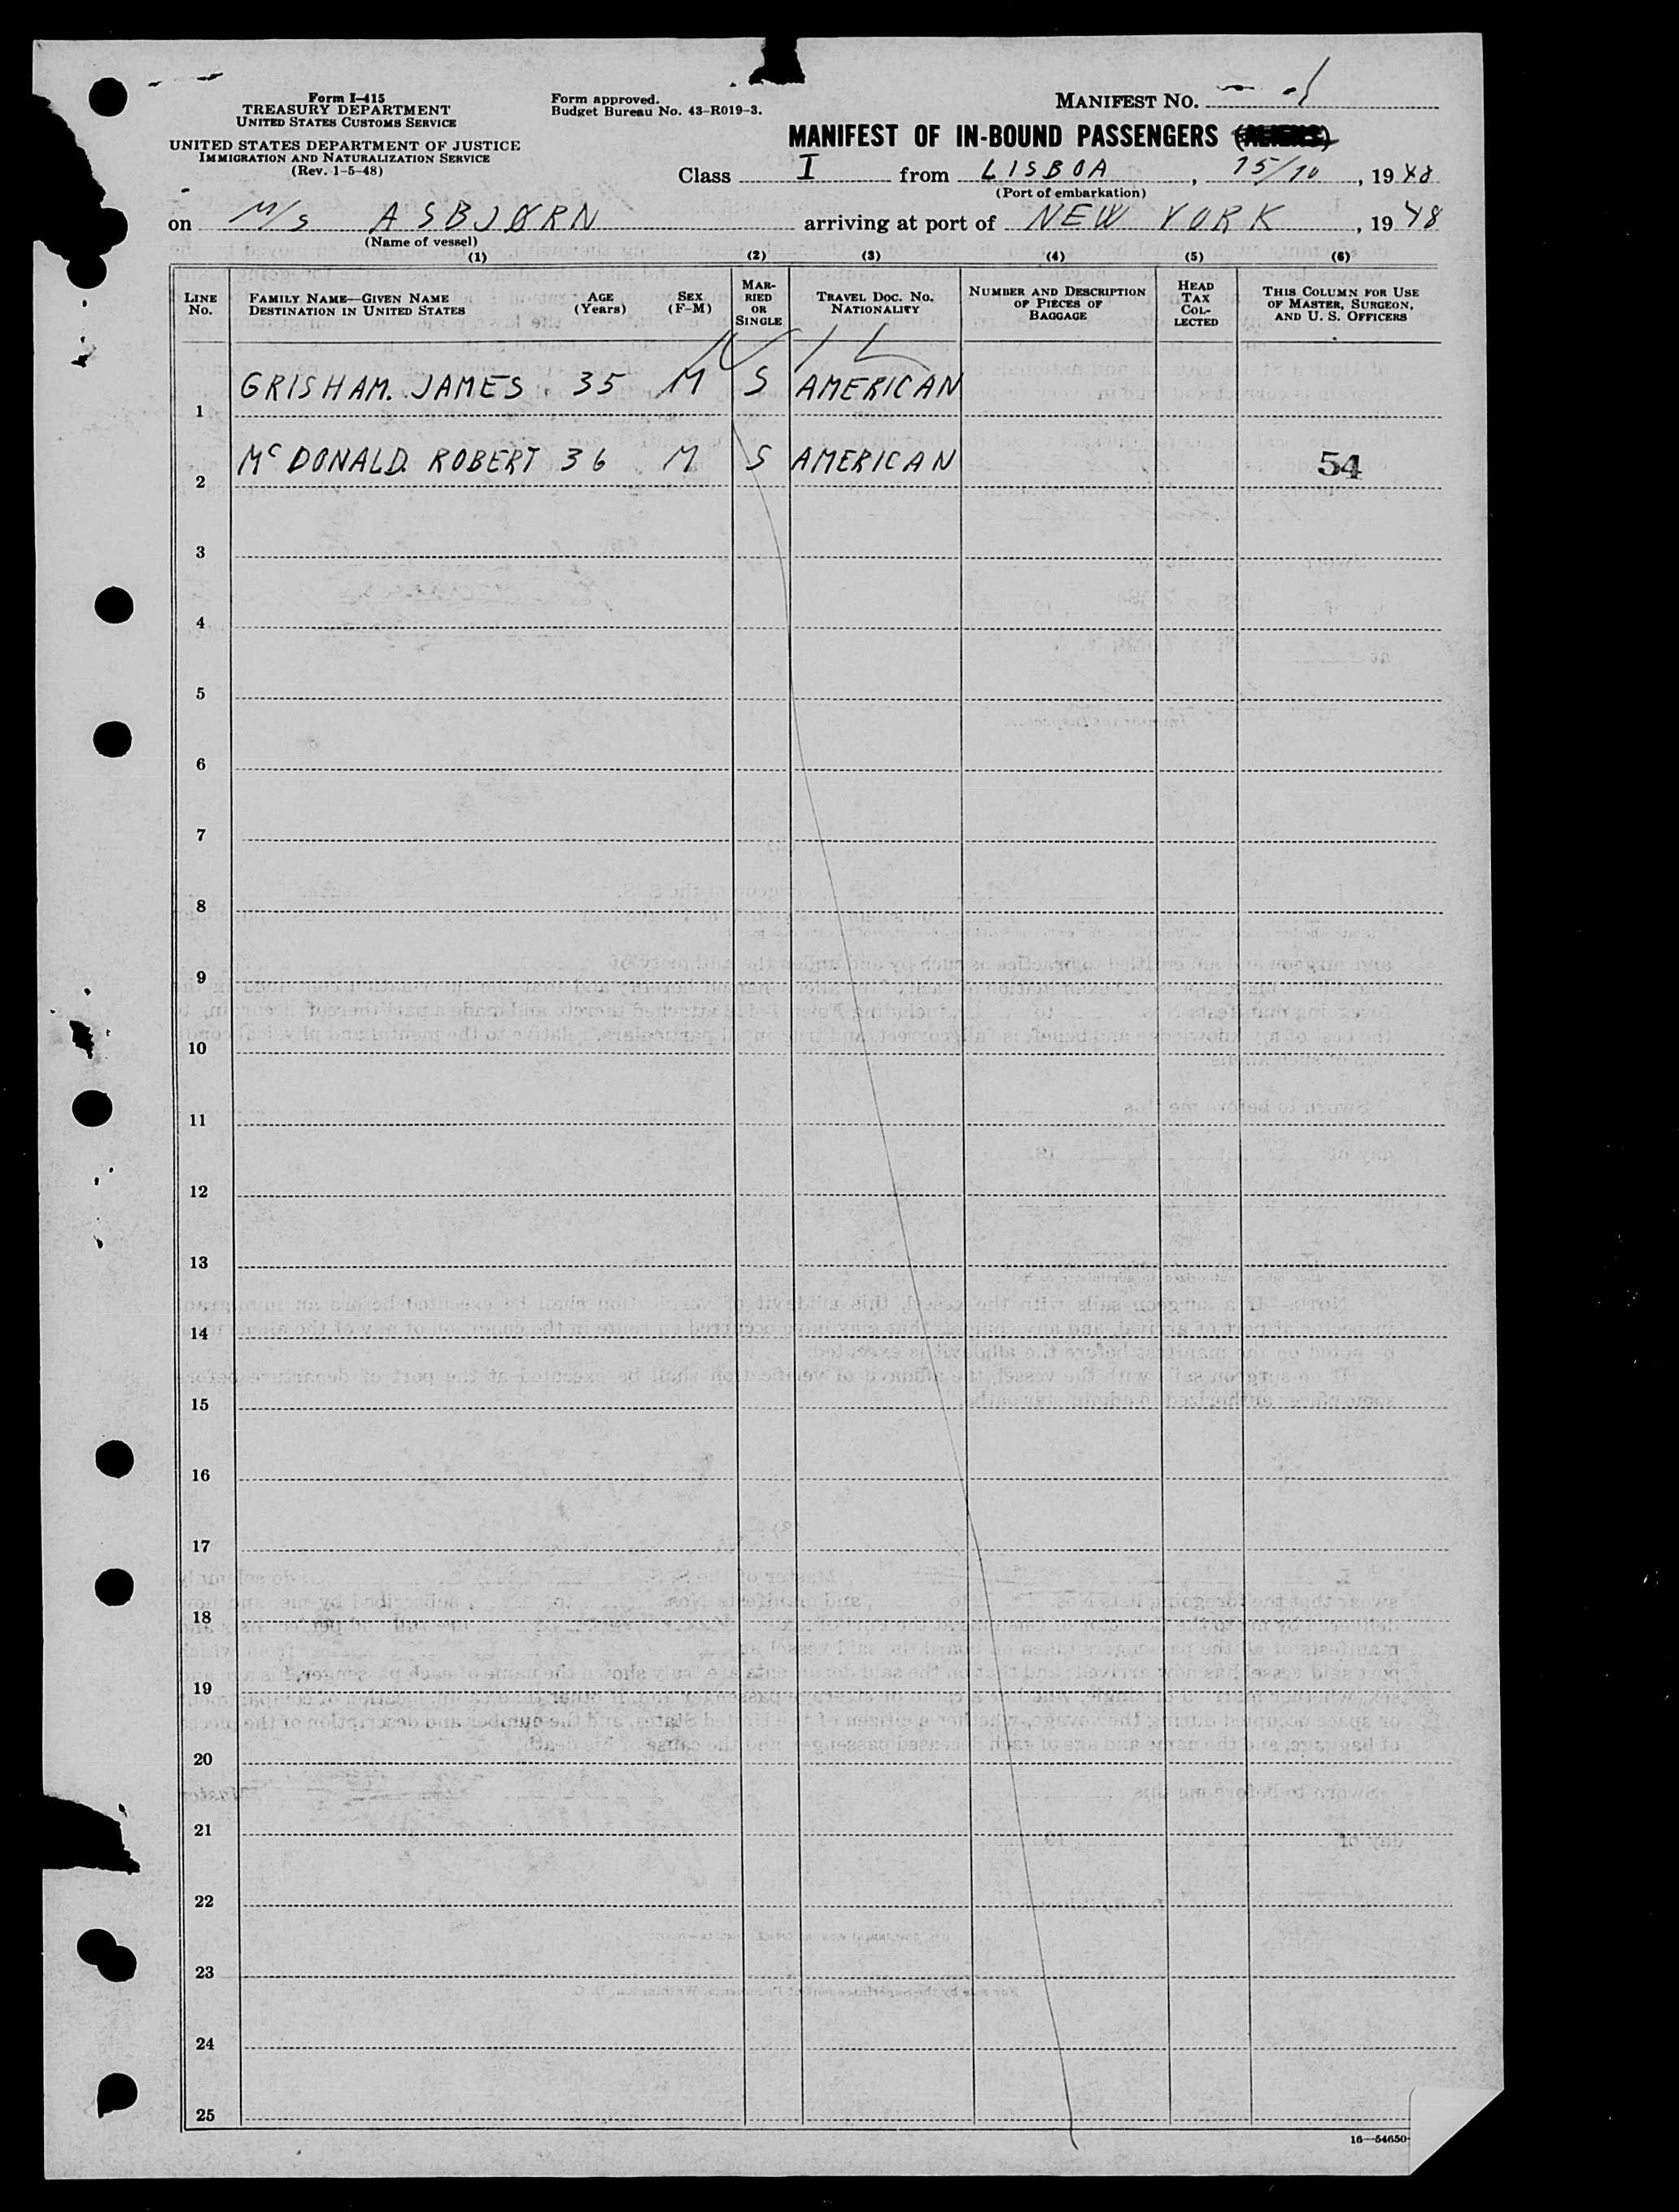 Form I-415
TREASURY DEPARTMENT
UNITED STATES CUSTOMS SERVICE
UNITED STATES DEPARTMENT OF JUSTICE
IMMIGRATION AND NATURALIZATION SERVICE
(Rev. 1-5-48)
Form approved.
Budget Bureau No. 43-R019-3.
MANIFEST NO.
MANIFEST OF IN-BOUND PASSENGERS (ALIENS)
Class I from LISBOA, 15/10, 1948
(Port of embarkation)
on M/S ASBJØRN arriving at port of NEW YORK, 1948
(Name of vessel)
(1) (2) (3) (4) (5) (6)
LINE No. FAMILY NAME—GIVEN NAME DESTINATION IN UNITED STATES AGE (Years) SEX (F-M) MARRIED OR SINGLE TRAVEL DOC. NO. NATIONALITY NUMBER AND DESCRIPTION OF PIECES OF BAGGAGE HEAD TAX COLLECTED THIS COLUMN FOR USE OF MASTER, SURGEON, AND U. S. OFFICERS
1 GRISHAM. JAMES 35 M S AMERICAN
2 McDONALD. ROBERT 36 M S AMERICAN 54
3
4
5
6
7
8
9
10
11
12
13
14
15
16
17
18
19
20
21
22
23
24
25
16—54650-